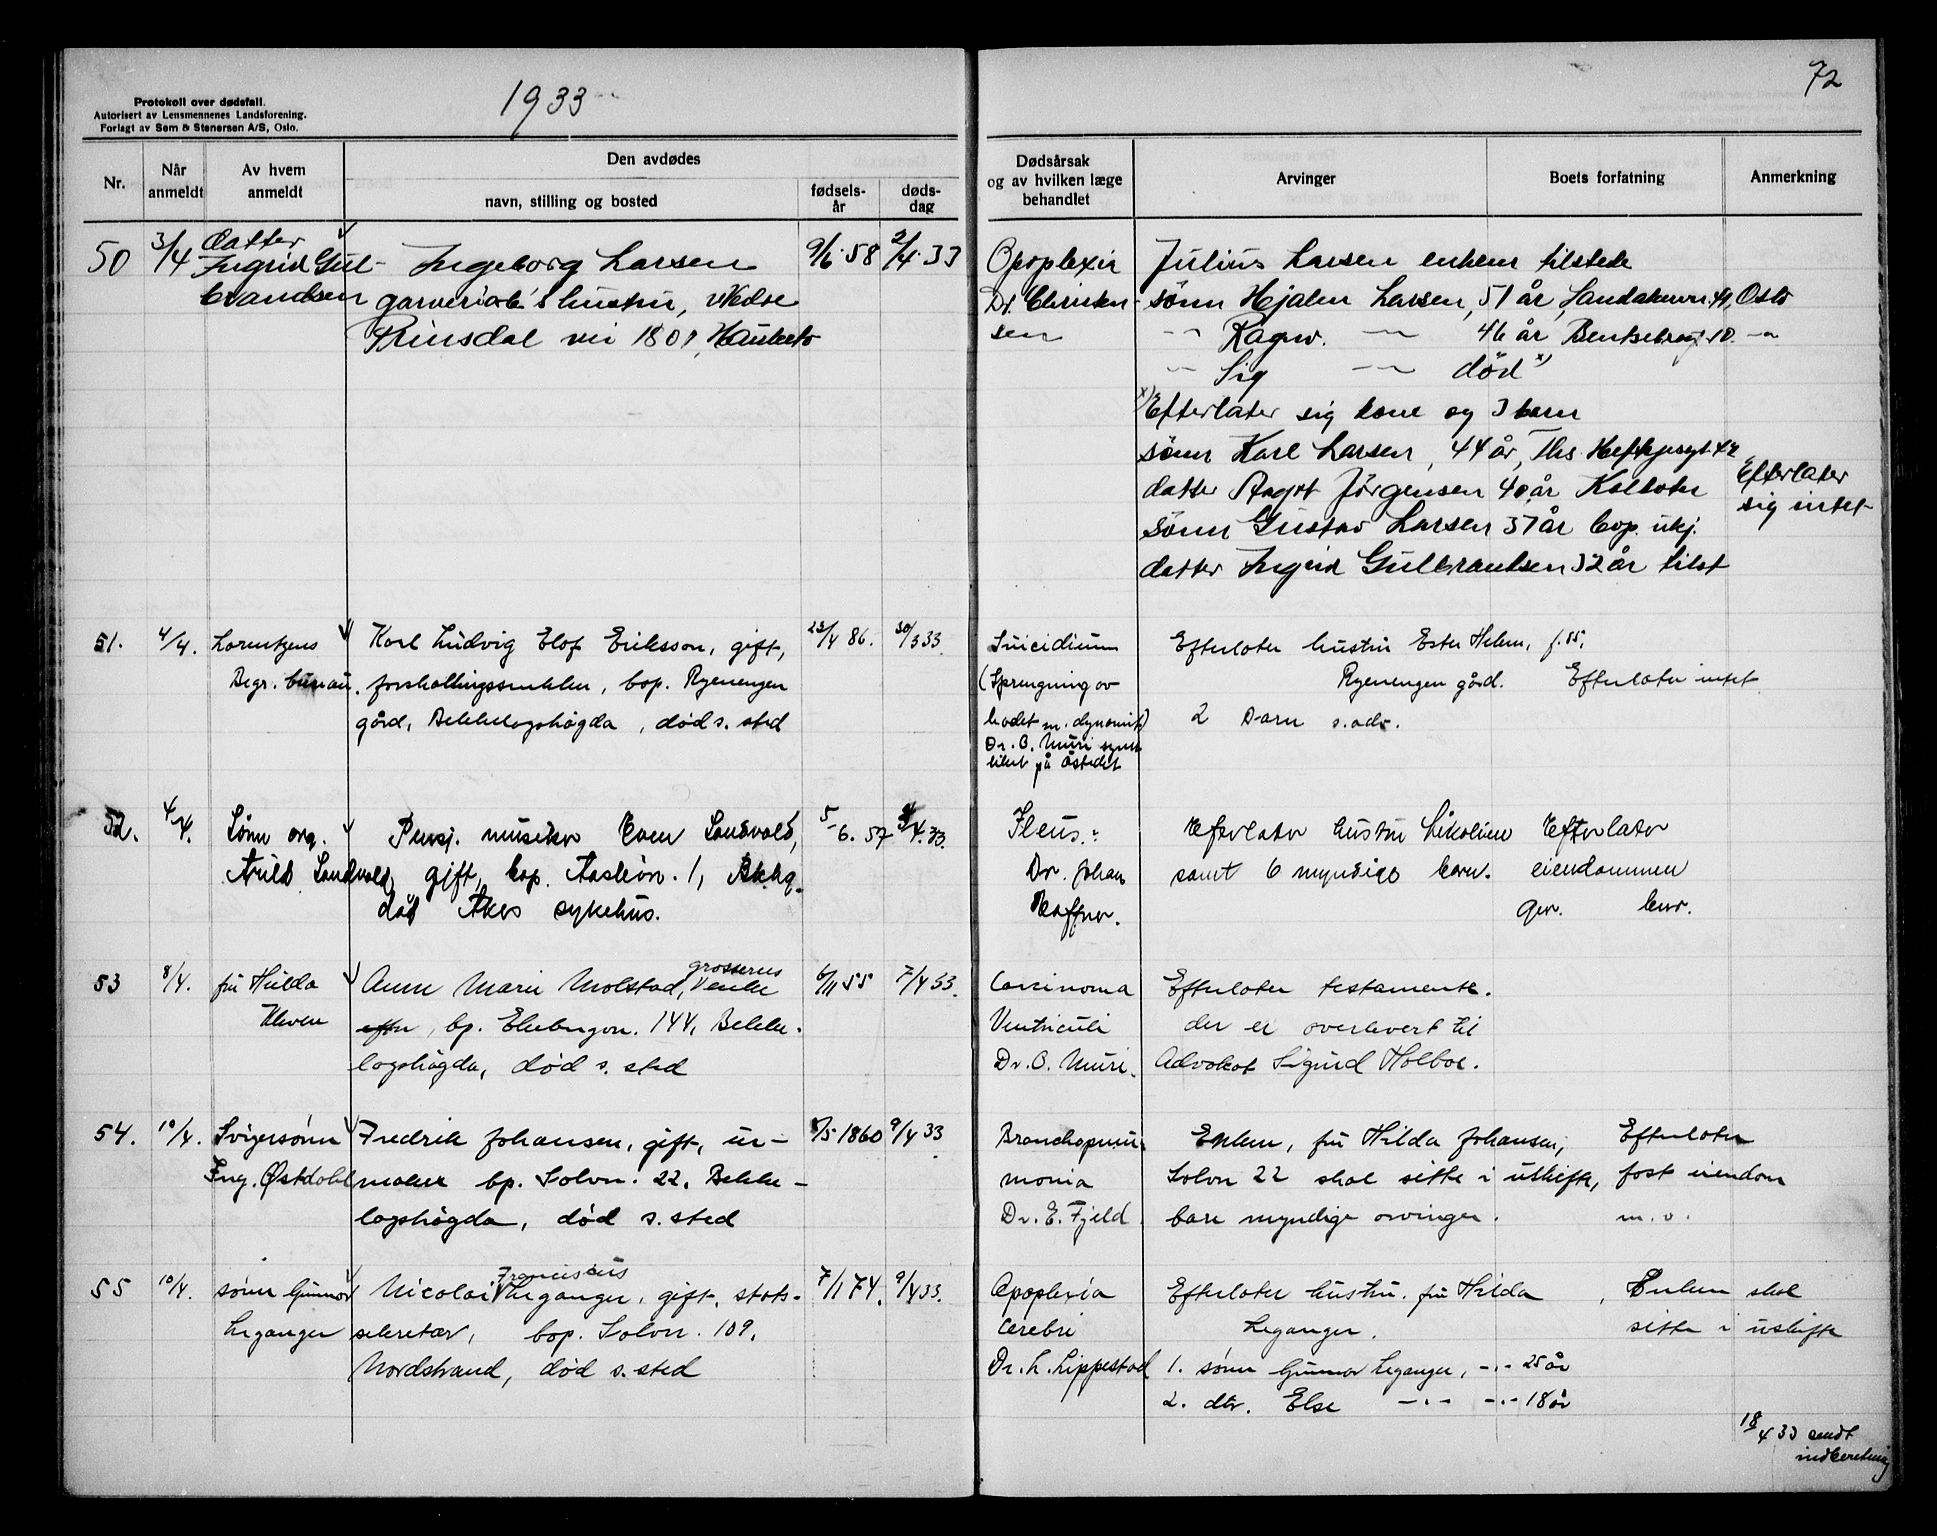 Protokoll over dødsfall.
Autorisert av Lensmennenes Landsforening.
Forlagt av Sem & Stenersen A/S, Oslo.
1933
72
Nr.
Når anmeldt
Av hvem anmeldt
Den avdødes
navn, stilling og bosted
fødsels-år
døds-dag
Dødsårsak og av hvilken læge behandlet
Arvinger
Boets forfatning
Anmerkning
50 3/4 datter
Ingrid Gulbrandsen
Ingeborg Larsen
garveriarb's hustru, Nedre
Prinsdal vei 1801, Hauketo
9/6 58 2/4 33
Apoplexia
Dr. Christensen
Julius Larsen enkem tilstede
sønn Hjalm Larsen, 51 år, Sandakerven 41, Oslo
-"- Ragnv. -"- 46 år Bentsebrogt 10 -"-
-"- Sig -"- död x)
x) Efterlater sig kone og 3 barn
sønn Karl Larsen, 44 år, Ths. Heftyesgt. 42
datter Aagot Jörgensen 40 år Kolbotn
sönn Gustav Larsen 37 år bop. ukj.
datter Ingrid Gulbrandsen 32 år tilst
Efterlater
sig intet
51. 4/4. Lorentzens
Begr. bureau.
Karl Ludvig Elof Eriksson, gift,
forskallingssnekker, bop. Ryenengen
gård, Bekkelagshögda, död s. sted
23/4 86. 30/3 33
Suicidium
(Sprengning av
hodet m. dynamit)
Dr. O. Muri
på åstedet
Efterlater hustru Ester Helen, f. 85,
Ryenengen gård. Efterlater intet
2 barn s. adr.
52. 4/4. Sönn org.
Arild Sandvold
Pensj. musiker Even Sandvold,
gift, bop. Aasleivn. 1, Bkhg.
död Akers sykehus.
5/6. 57 3/4. 33.
Ileus.
Dr. Johan
Haffner.
Efterlater hustru Nikoline
samt 6 myndige barn.
Efterlater
eiendommen
53 8/4. fru Hulda
Kleven
Anne Marie Molstad, grosserers enke
efter, bp. Ekebergvn. 144, Bekke-
lagshögda, död s. sted
6/11 55 7/4 33.
Carcinoma
Ventriculi
Dr. O. Muri.
Efterlater testamente.
der er overlevert til
Advokat Sigurd Holboe.
54. 10/4. Svigersönn
Ing. Østdahl
Fredrik Johansen, gift, ur-
maker bp. Solvn. 22, Bekke-
lagshögda, död s. sted
8/5 1860 9/4 33
Bronchopneu-
monia
Dr. E. Fjeld.
Enken, fru Hilda Johansen,
Solvn 22 skal sitte i uskifte,
bare myndige arvinger.
Efterlater
fast eiendom
m. v.
55 10/4. sønn Gunnar
Leganger
Nicolai Franciscus Leganger, gift, stats-
sekretær, bop. Solvn. 109,
Nordstrand, död s. sted
7/1 74. 9/4 33.
Apoplexia
Cerebri
Dr. L. Lippestad
Efterlater hustru. fru Hilda
Leganger.
Enken skal
sitte i uskifte
1. sønn Gunnar Leganger, -"- 25 år
2. dtr. Else -"- -"- 18 år
18/4 33 sendt
indberetning